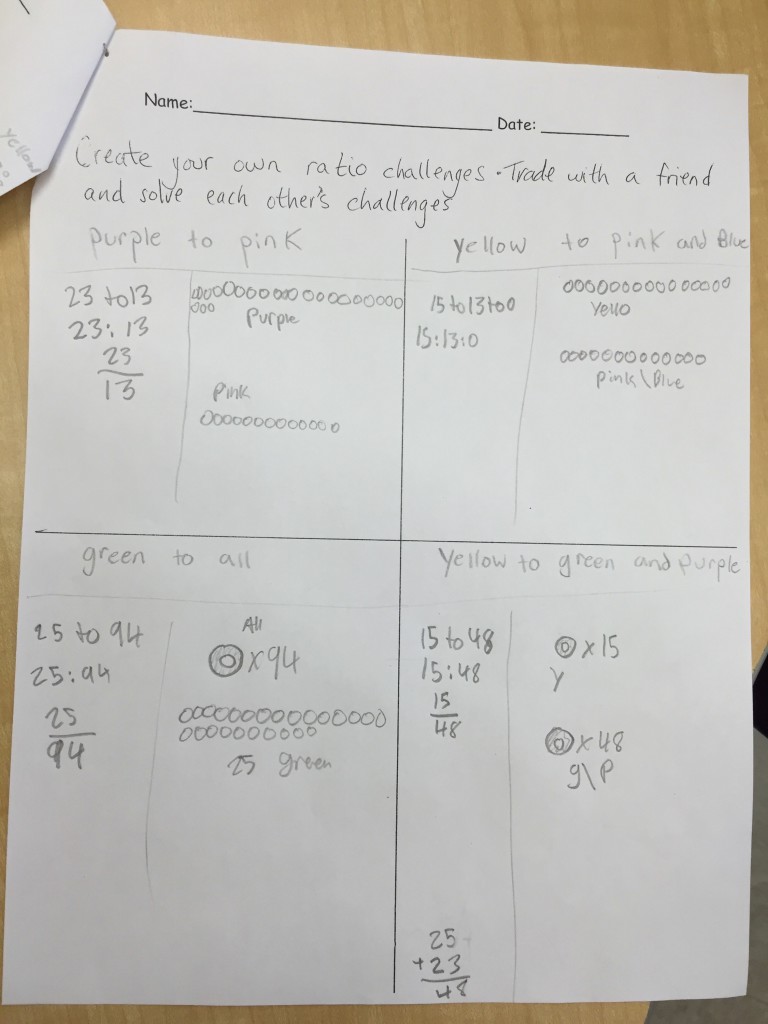 Yellow
Name:
Date:
Create your own ratio challenges. Trade with a friend
and solve each other's challenges
purple to pink
23 to 13
23:13
23
13
Purple
Pink
yellow to pink and Blue
15 to 13 to 0
15:13:0
Yello
pink\Blue
green to all
25 to 94
25:94
25
94
All
x94
25 green
Yellow to green and purple
15 to 48
15:48
15
48
x15
Y
x48
g\P
25
+23
48